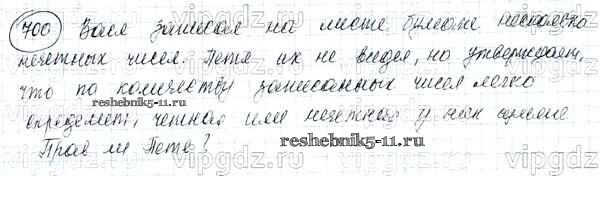 700 Вася записал на листе бумаги несколько
нечетных чисел. Петя их не видел, но утверждает,
что по количеству записанных чисел легко
reshebnik5-11.ru
определит, четная или нечетная у них сумма
reshebnik5-11.ru
Прав ли Петя?
vipgdz.ru